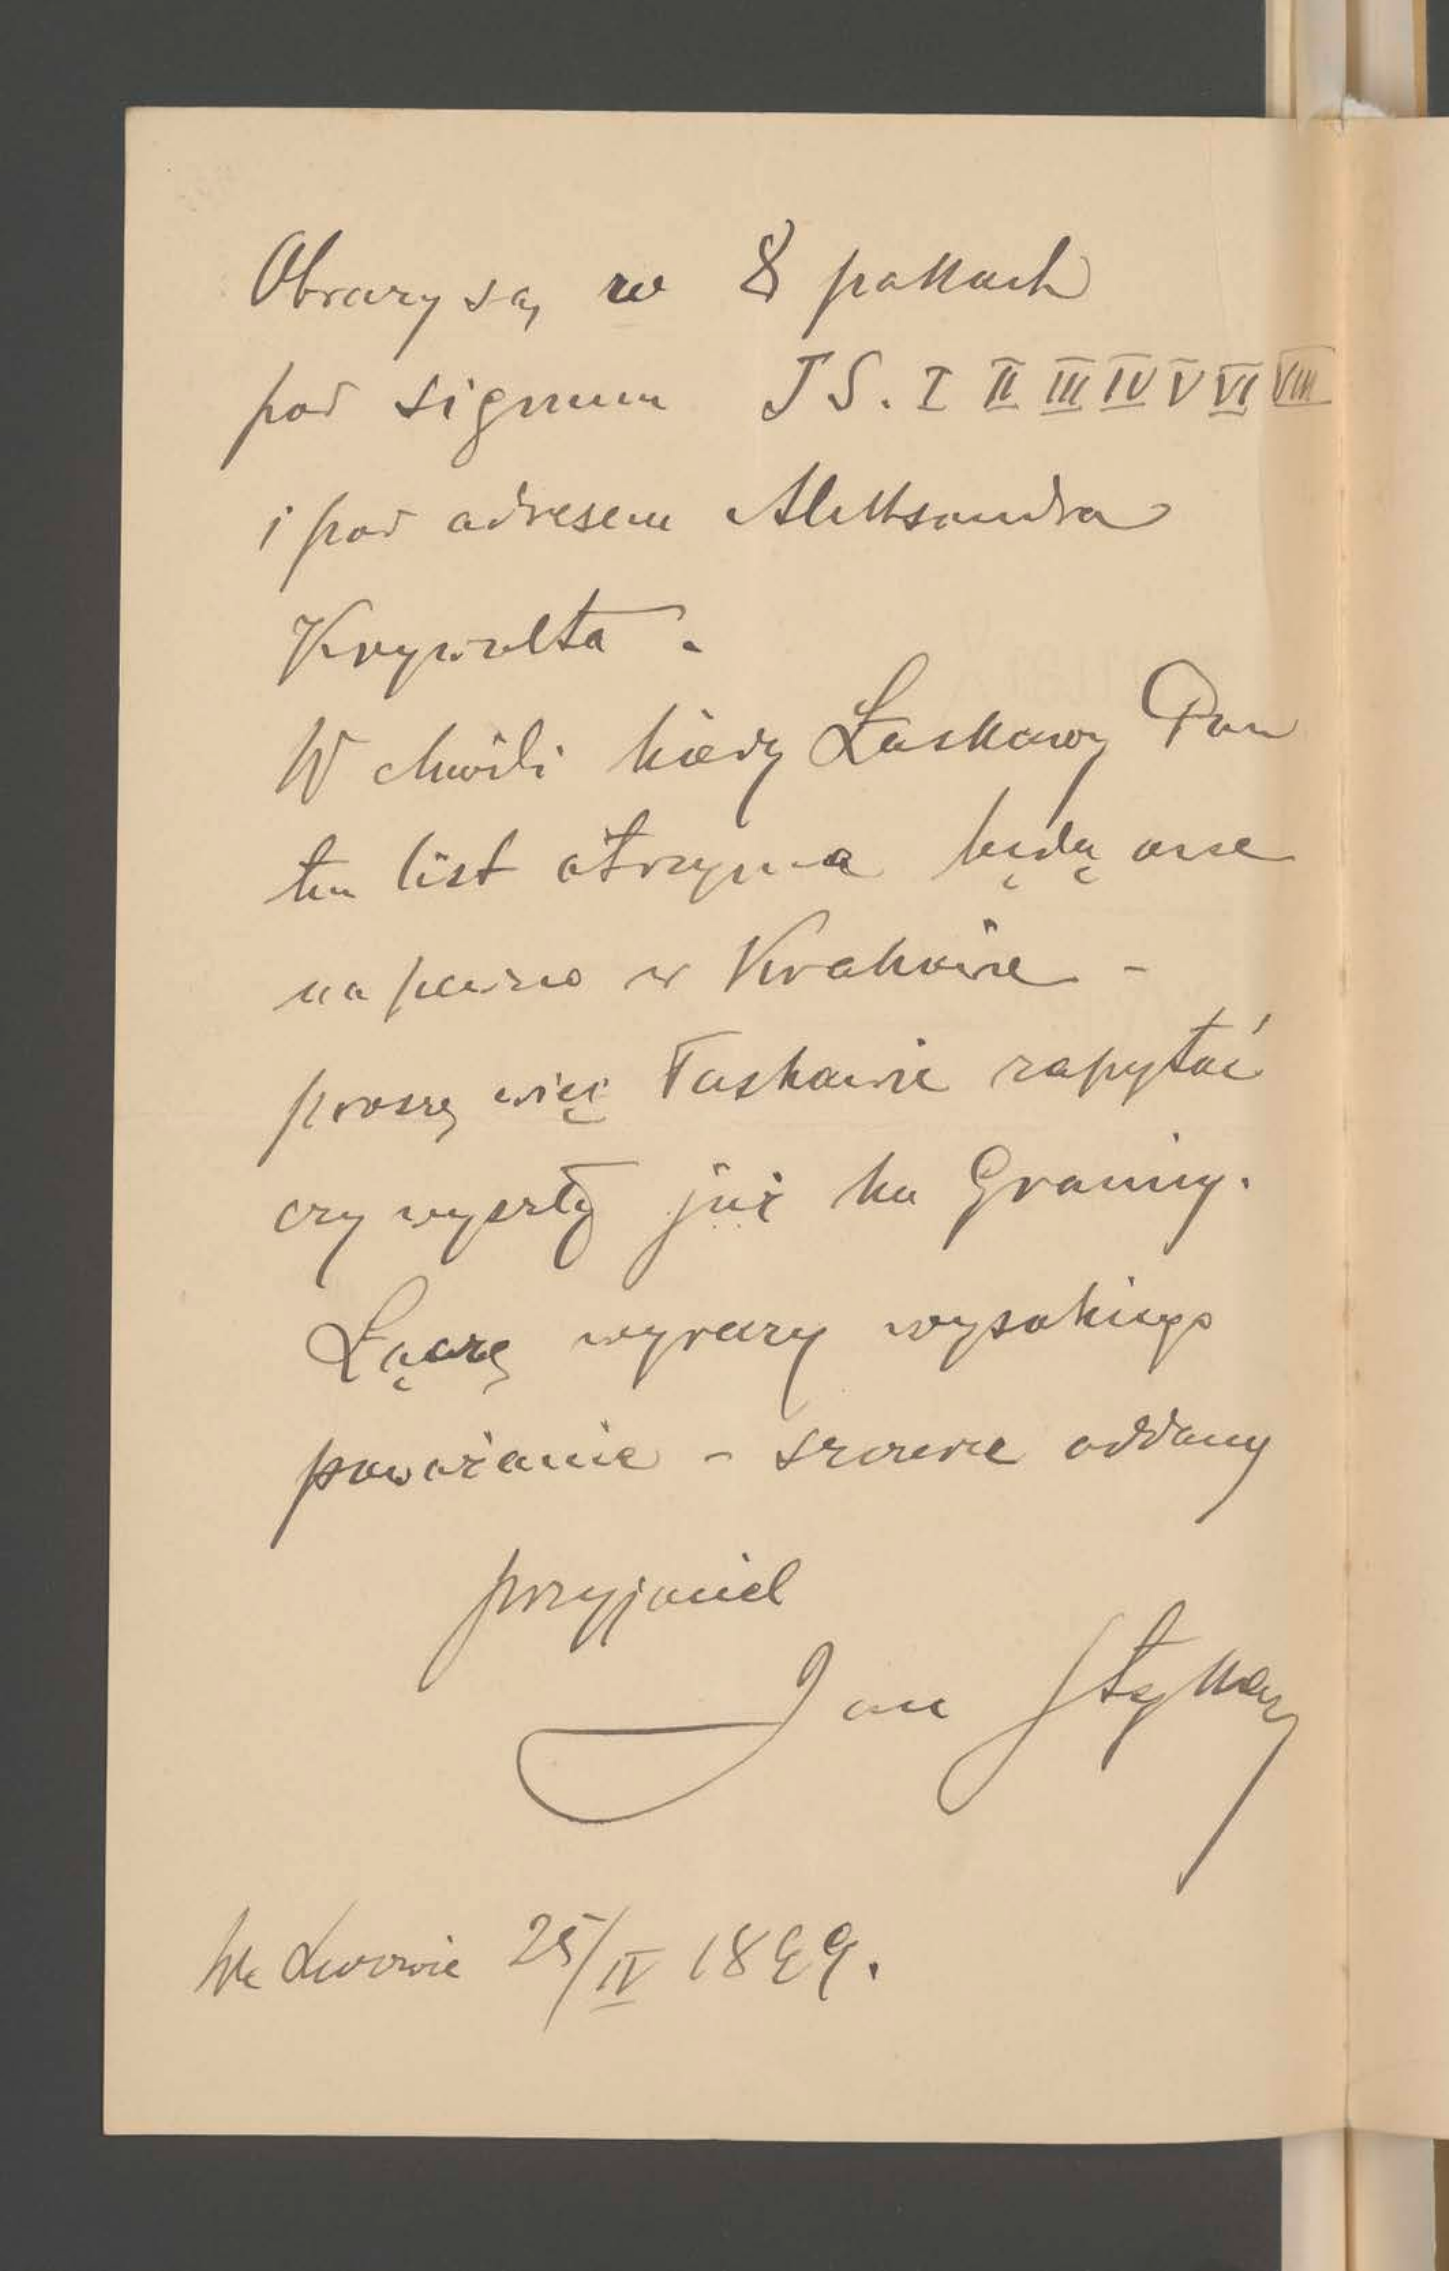 Obrazy są w 8 pakach
pod signum JS. I II III IV V VI VIII
i pod adresem Aleksandra
Krywulta.
W chwili kiedy Łaskawy Pan
ten list otrzyma będą one
na pewno w Krakowie -
proszę więc łaskawie zapytać
czy wyszły już ku Granicy.
Łączę wyrazy wysokiego
poważanie - szczerze oddany
przyjaciel
Jan Styka
We Lwowie 25/IV 1899.